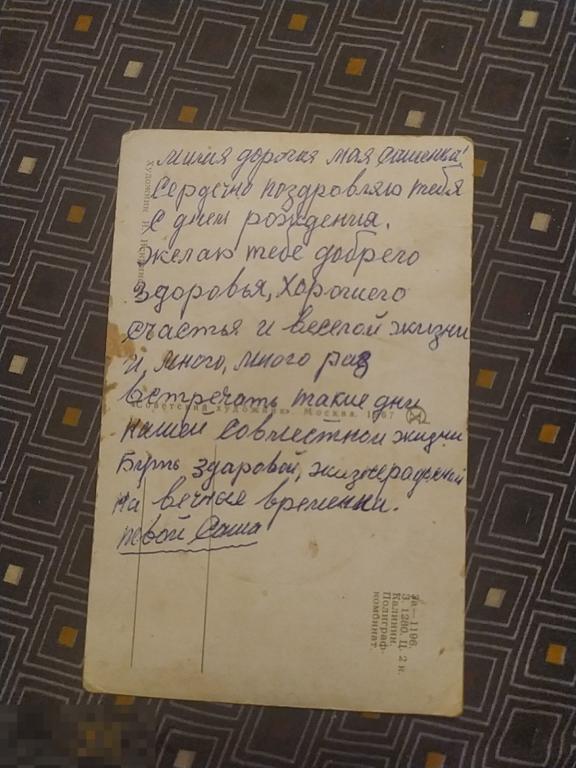 милая дорогая мая Ошенька!
Сердечно поздровляю тебя
с днем рождения.
желаю тебе доброго
здоровья, хорошего
счастья и веселой жизни
и, много, много раз
встречать такие дни
нашей совместной жизни
Быть здаровой, жизнерадосной
на вечные времении.
твой Саша
Художник
«Советский художник». Москва. 1967
За—1196.
З 1280. Ц. 2 к.
Калинин.
Полиграф-
комбинат.